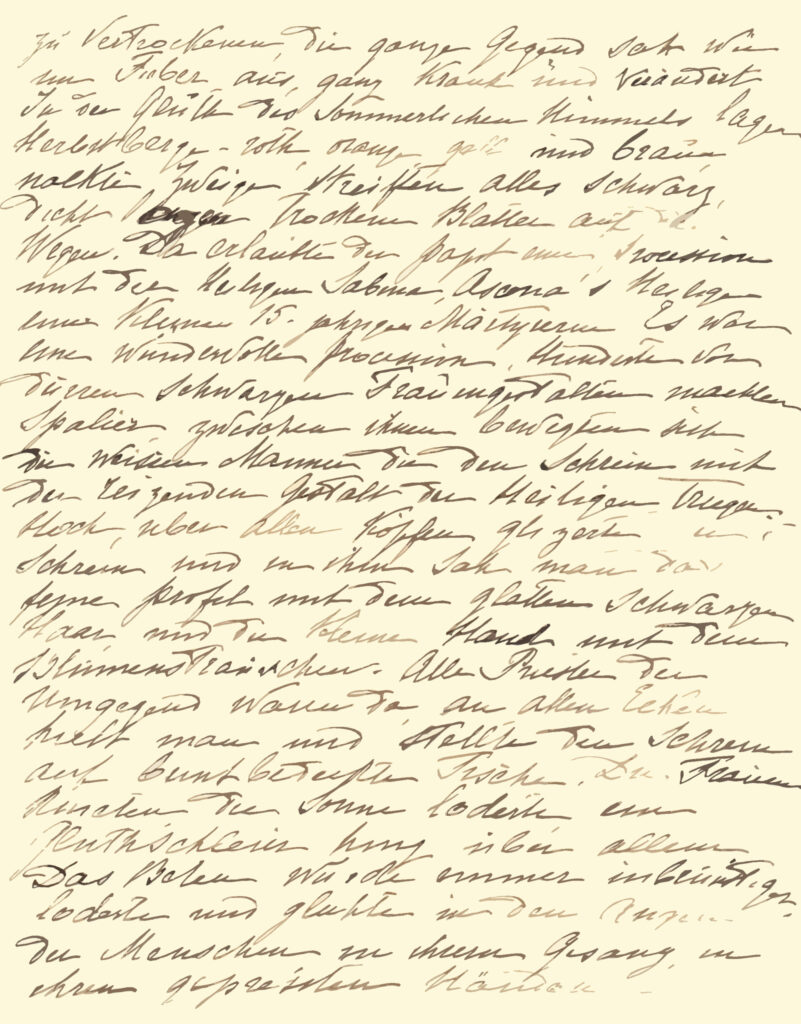 zu Vertrockenen, die ganze Gegend sah wie
im Fieber aus, ganz krank und verändert
In der Gluth des Sommerlichen Himmels lagen
Herbstberge - roth, orange, gelb und braun
nackte Zweige, Streifen alles schwarz,
dicht lagen trockene Blätter auf den
Wegen. Da erlaubte der Papst eine Procession
mit der Heiligen Sabina, Ascona's Heilige
eine kleine 15. jahrige Märtyrerin Es war
eine wundervolle Procession, Hunderte von
dürren schwarzen Frauengestalten machten
Spalier zwischen ihnen bewegten sich
die weissen Männer die den Schrein mit
der reizenden Gestalt der Heiligen trugen
Hoch, über allen Köpfen glizerte der
Schrein und in ihm sah man das
feine Profil mit dem glatten schwarzen
Haar, und die kleine Hand mit dem
Blumensträusschen. Alle Priester der
Umgegend waren da, an allen Ecken
hielt man und stellte den Schrein
auf bunt bedeckte Tische. Die Frauen
knieten die Sonne loderte ein
Gluthschleier hing über allem
Das Beten wurde immer inbrünstiger,
loderte und glühte in den Augen
der Menschen in ihrem Gesang, in
ihren gepressten Händen -